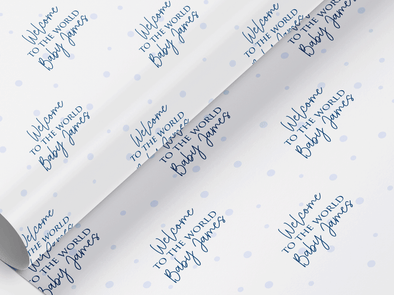 Welcome
TO THE WORLD
Baby James
Welcome
TO THE WORLD
Baby James
Welcome
TO THE WORLD
Baby James
Welcome
TO THE WORLD
Baby James
Welcome
TO THE WORLD
Baby James
TO THE WORLD
Baby James
Welcome
TO THE WORLD
Baby James
Welcome
TO THE WORLD
Baby James
Welcome
TO THE WORLD
Baby James
Welcome
TO THE WORLD
Baby James